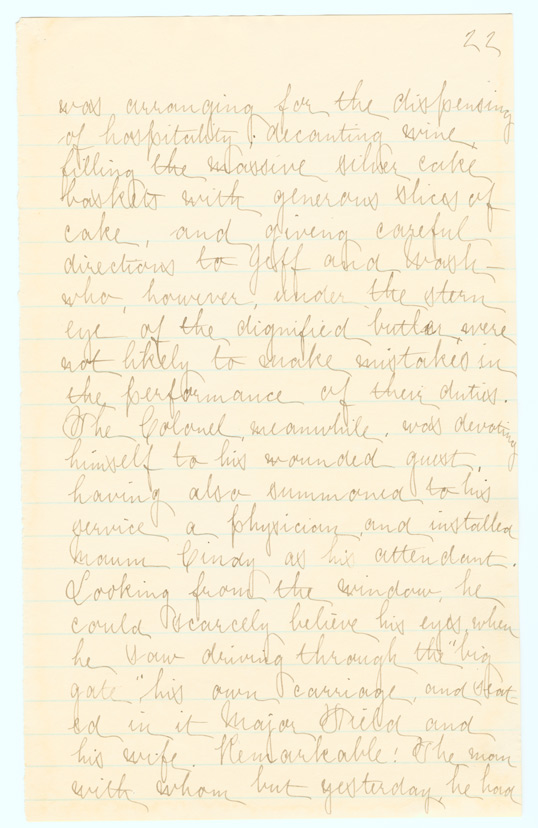 22
was arranging for the dispensing
of hospitality; decanting wine,
filling the massive silver cake
baskets with generous slices of
cake, and giving careful
directions to Jeff and Wash—
who, however, under the stern
eye of the dignified butler, were
not likely to make mistakes in
the performance of their duties.
The Colonel, meanwhile, was devoting
himself to his wounded guest,
having also summoned to his
service a physician, and installed
Maum Cindy as his attendant.
Looking from the window, he
could scarcely believe his eyes, when
he saw driving through the "big
gate" his own carriage, and seat
ed in it Major Field and
his wife. Remarkable! The man
with whom but yesterday, he had